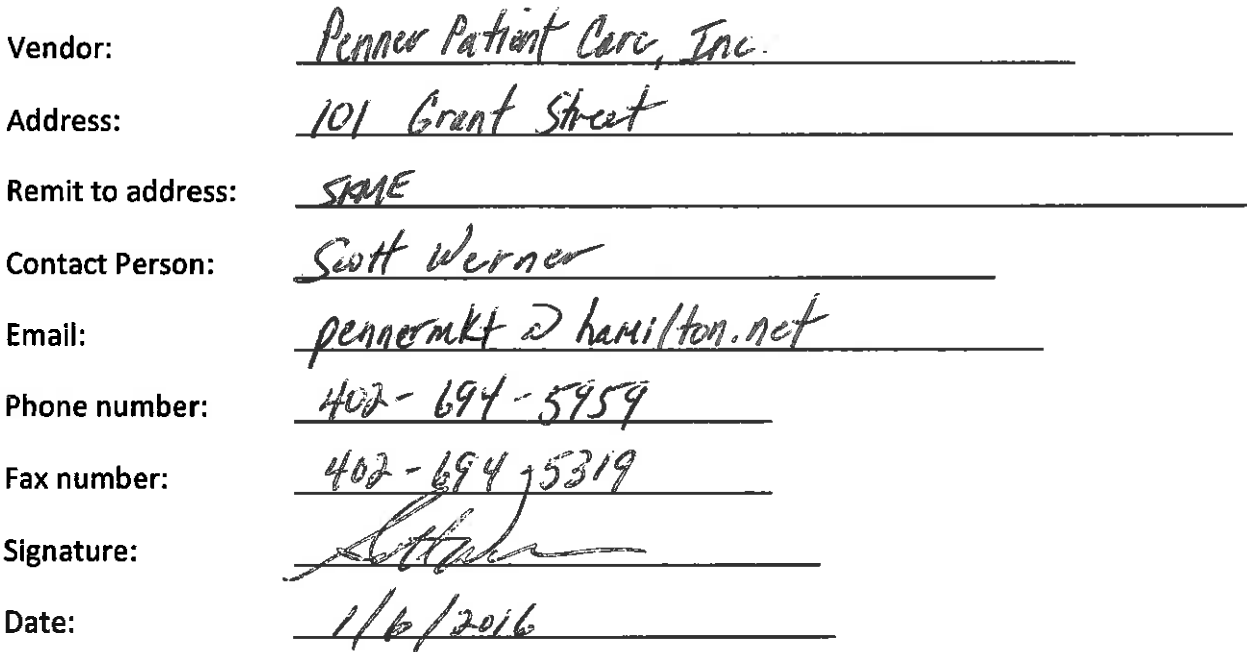 Vendor: Penner Patient Care, Inc.
Address: 101 Grant Street
Remit to address: SAME
Contact Person: Scott Werner
Email: pennermkt @ hamilton.net
Phone number: 402-694-5959
Fax number: 402-694-5319
Signature:
Date: 1/6/2016